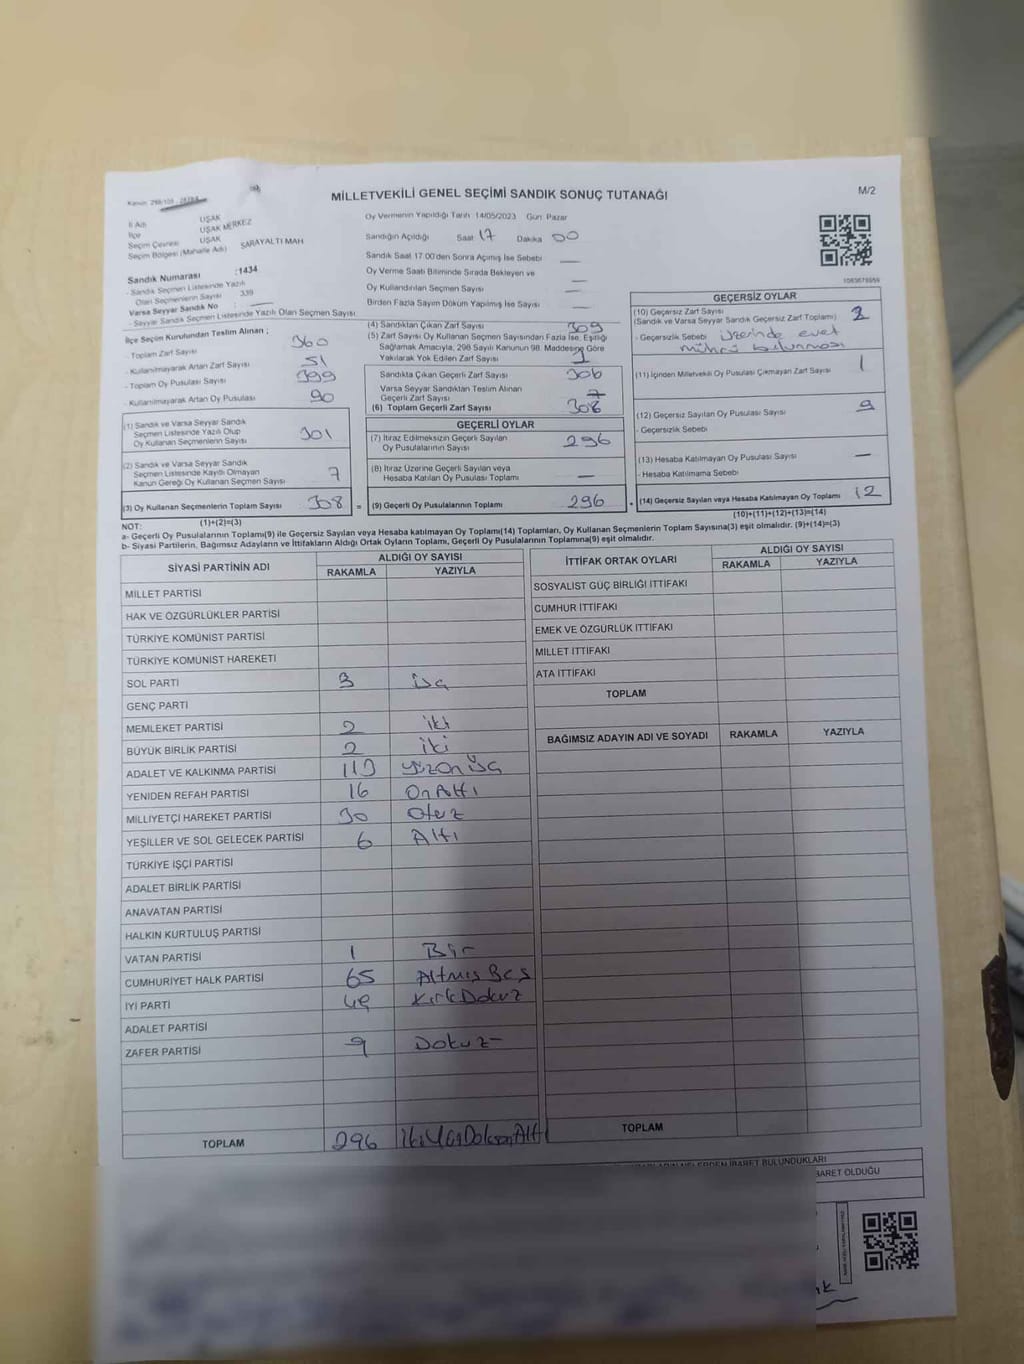 MİLLETVEKİLİ GENEL SEÇİMİ SANDIK SONUÇ TUTANAĞI
M/2
Kanun: 298/105
İl Adı UŞAK
İlçe UŞAK MERKEZ
Seçim Çevresi UŞAK
Seçim Bölgesi (Mahalle Adı) SARAYALTI MAH
Sandık Numarası :1434
- Sandık Seçmen Listesinde Yazılı
Olan Seçmenlerin Sayısı 339
Varsa Seyyar Sandık No :
- Seyyar Sandık Seçmen Listesinde Yazılı Olan Seçmen Sayısı
Oy Vermenin Yapıldığı Tarih 14/05/2023 Gün Pazar
Sandığın Açıldığı Saat 17 Dakika 00
Sandık Saat 17.00'den Sonra Açılmış İse Sebebi —
Oy Verme Saati Bitiminde Sırada Bekleyen ve
Oy Kullandırılan Seçmen Sayısı —
Birden Fazla Sayım Döküm Yapılmış İse Sayısı —
1083678959
İlçe Seçim Kurulundan Teslim Alınan ;
- Toplam Zarf Sayısı 360
- Kullanılmayarak Artan Zarf Sayısı 51
- Toplam Oy Pusulası Sayısı 399
- Kullanılmayarak Artan Oy Pusulası 90
(1) Sandık ve Varsa Seyyar Sandık
Seçmen Listesinde Yazılı Olup
Oy Kullanan Seçmenlerin Sayısı 301
(2) Sandık ve Varsa Seyyar Sandık
Seçmen Listesinde Kayıtlı Olmayan
Kanun Gereği Oy Kullanan Seçmen Sayısı 7
(3) Oy Kullanan Seçmenlerin Toplam Sayısı 308
(1)+(2)=(3)
(4) Sandıktan Çıkan Zarf Sayısı 309
(5) Zarf Sayısı Oy Kullanan Seçmen Sayısından Fazla İse, Eşitliği
Sağlamak Amacıyla, 298 Sayılı Kanunun 98. Maddesine Göre
Yakılarak Yok Edilen Zarf Sayısı 1
Sandıkta Çıkan Geçerli Zarf Sayısı 306
Varsa Seyyar Sandıktan Teslim Alınan
Geçerli Zarf Sayısı
(6) Toplam Geçerli Zarf Sayısı 306
GEÇERLİ OYLAR
(7) İtiraz Edilmeksizin Geçerli Sayılan
Oy Pusulalarının Sayısı 296
(8) İtiraz Üzerine Geçerli Sayılan veya
Hesaba Katılan Oy Pusulası Toplamı —
= (9) Geçerli Oy Pusulalarının Toplamı 296
GEÇERSİZ OYLAR
(10) Geçersiz Zarf Sayısı
(Sandık ve Varsa Seyyar Sandık Geçersiz Zarf Toplamı) 2
- Geçersizlik Sebebi üzerinde evet
mührü bulunması
(11) İçinden Milletvekili Oy Pusulası Çıkmayan Zarf Sayısı 1
(12) Geçersiz Sayılan Oy Pusulası Sayısı 9
- Geçersizlik Sebebi
(13) Hesaba Katılmayan Oy Pusulası Sayısı —
- Hesaba Katılmama Sebebi —
+ (14) Geçersiz Sayılan veya Hesaba Katılmayan Oy Toplamı 12
(10)+(11)+(12)+(13)=(14)
NOT:
a- Geçerli Oy Pusulalarının Toplamı(9) ile Geçersiz Sayılan veya Hesaba katılmayan Oy Toplamı(14) Toplamları, Oy Kullanan Seçmenlerin Toplam Sayısına(3) eşit olmalıdır. (9)+(14)=(3)
b- Siyasi Partilerin, Bağımsız Adayların ve İttifakların Aldığı Oy Sayısı Toplamı, Geçerli Oy Pusulalarının Toplamına(9) eşit olmalıdır.
SİYASİ PARTİNİN ADI ALDIĞI OY SAYISI
RAKAMLA YAZIYLA
MİLLET PARTİSİ
HAK VE ÖZGÜRLÜKLER PARTİSİ
TÜRKİYE KOMÜNİST PARTİSİ
TÜRKİYE KOMÜNİST HAREKETİ
SOL PARTİ 3 üç
GENÇ PARTİ
MEMLEKET PARTİSİ 2 iki
BÜYÜK BİRLİK PARTİSİ 2 iki
ADALET VE KALKINMA PARTİSİ 113 yüzon üç
YENİDEN REFAH PARTİSİ 16 On Altı
MİLLİYETÇİ HAREKET PARTİSİ 30 Otuz
YEŞİLLER VE SOL GELECEK PARTİSİ 6 Altı
TÜRKİYE İŞÇİ PARTİSİ
ADALET BİRLİK PARTİSİ
ANAVATAN PARTİSİ
HALKIN KURTULUŞ PARTİSİ
VATAN PARTİSİ 1 Bir
CUMHURİYET HALK PARTİSİ 65 Altmış Beş
İYİ PARTİ 49 Kırk Dokuz
ADALET PARTİSİ
ZAFER PARTİSİ 9 Dokuz
TOPLAM 296 İki Yüz Doksan Altı
İTTİFAK ORTAK OYLARI ALDIĞI OY SAYISI
RAKAMLA YAZIYLA
SOSYALİST GÜÇ BİRLİĞİ İTTİFAKI
CUMHUR İTTİFAKI
EMEK VE ÖZGÜRLÜK İTTİFAKI
MİLLET İTTİFAKI
ATA İTTİFAKI
TOPLAM
BAĞIMSIZ ADAYIN ADI VE SOYADI RAKAMLA YAZIYLA
TOPLAM
İBARET BULUNDUKLARI
BARET OLDUĞU